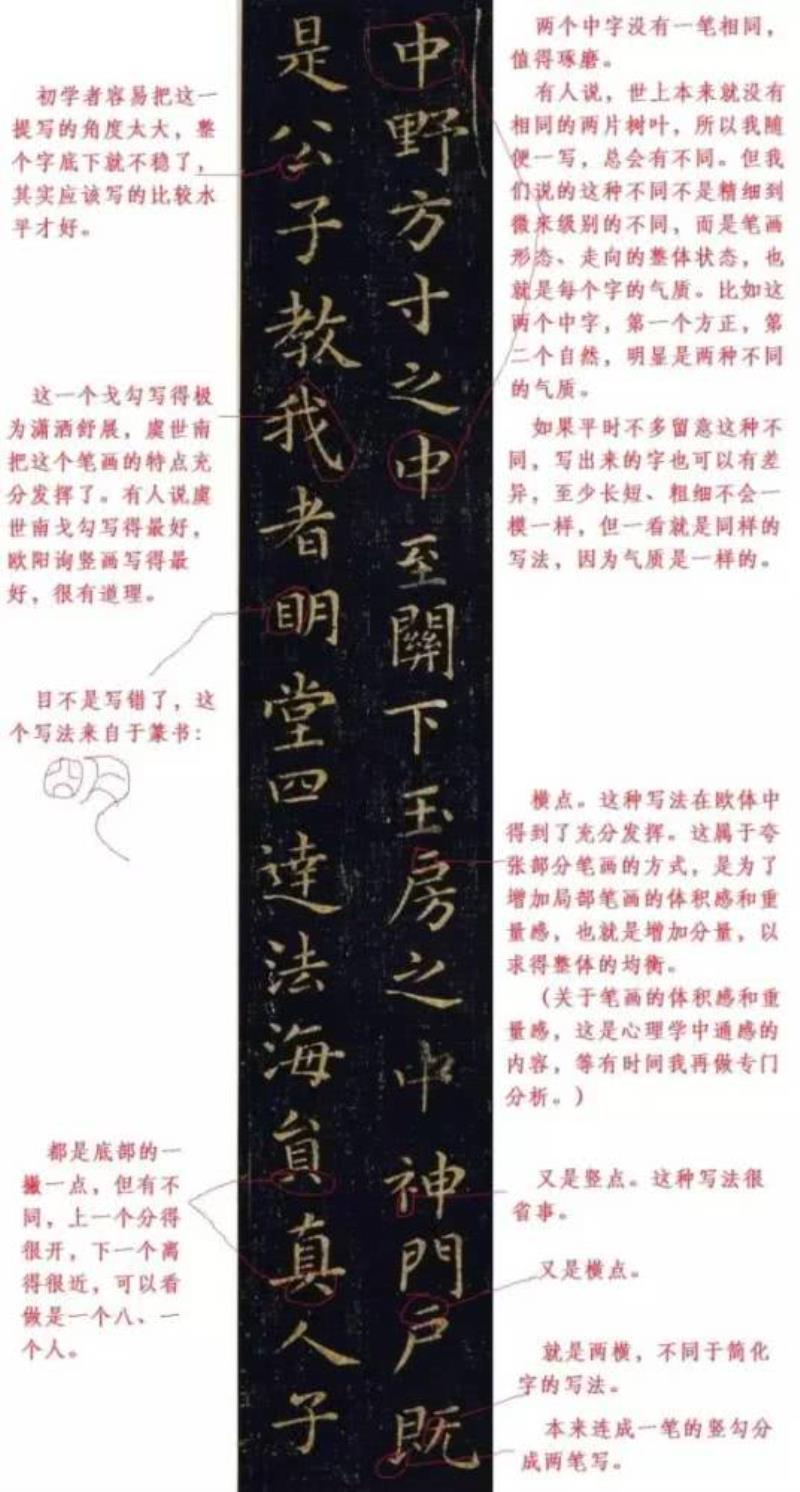 中野方寸之中至關下玉房之中神門戶既
是公子教我者眀堂四達法海貟真人子
两个中字没有一笔相同，
值得琢磨。
有人说，世上本来就没有
相同的两片树叶，所以我随
便一写，总会有不同。但我
们说的这种不同不是精细到
微米级别的不同，而是笔画
形态、走向的整体状态，也
就是每个字的气质。比如这
两个中字，第一个方正，第
二个自然，明显是两种不同
的气质。
如果平时不多留意这种不
同，写出来的字也可以有差
异，至少长短、粗细不会一
模一样，但一看就是同样的
写法，因为气质是一样的。
横点。这种写法在欧体中
得到了充分发挥。这属于夸
张部分笔画的方式，是为了
增加局部笔画的体积感和重
量感，也就是增加分量，以
求得整体的均衡。
（关于笔画的体积感和重
量感，这是心理学中通感的
内容，等有时间我再做专门
分析。）
又是竖点。这种写法很
省事。
又是横点。
就是两横，不同于简化
字的写法。
本来连成一笔的竖勾分
成两笔写。
初学者容易把这一
提写的角度太大，整
个字底下就不稳了，
其实应该写的比较水
平才好。
这一个戈勾写得极
为潇洒舒展，虞世南
把这个笔画的特点充
分发挥了。有人说虞
世南戈勾写得最好，
欧阳询竖画写得最
好，很有道理。
目不是写错了，这
个写法来自于篆书：
都是底部的一
撇一点，但有不
同，上一个分得
很开，下一个离
得很近，可以看
做是一个八、一
个人。